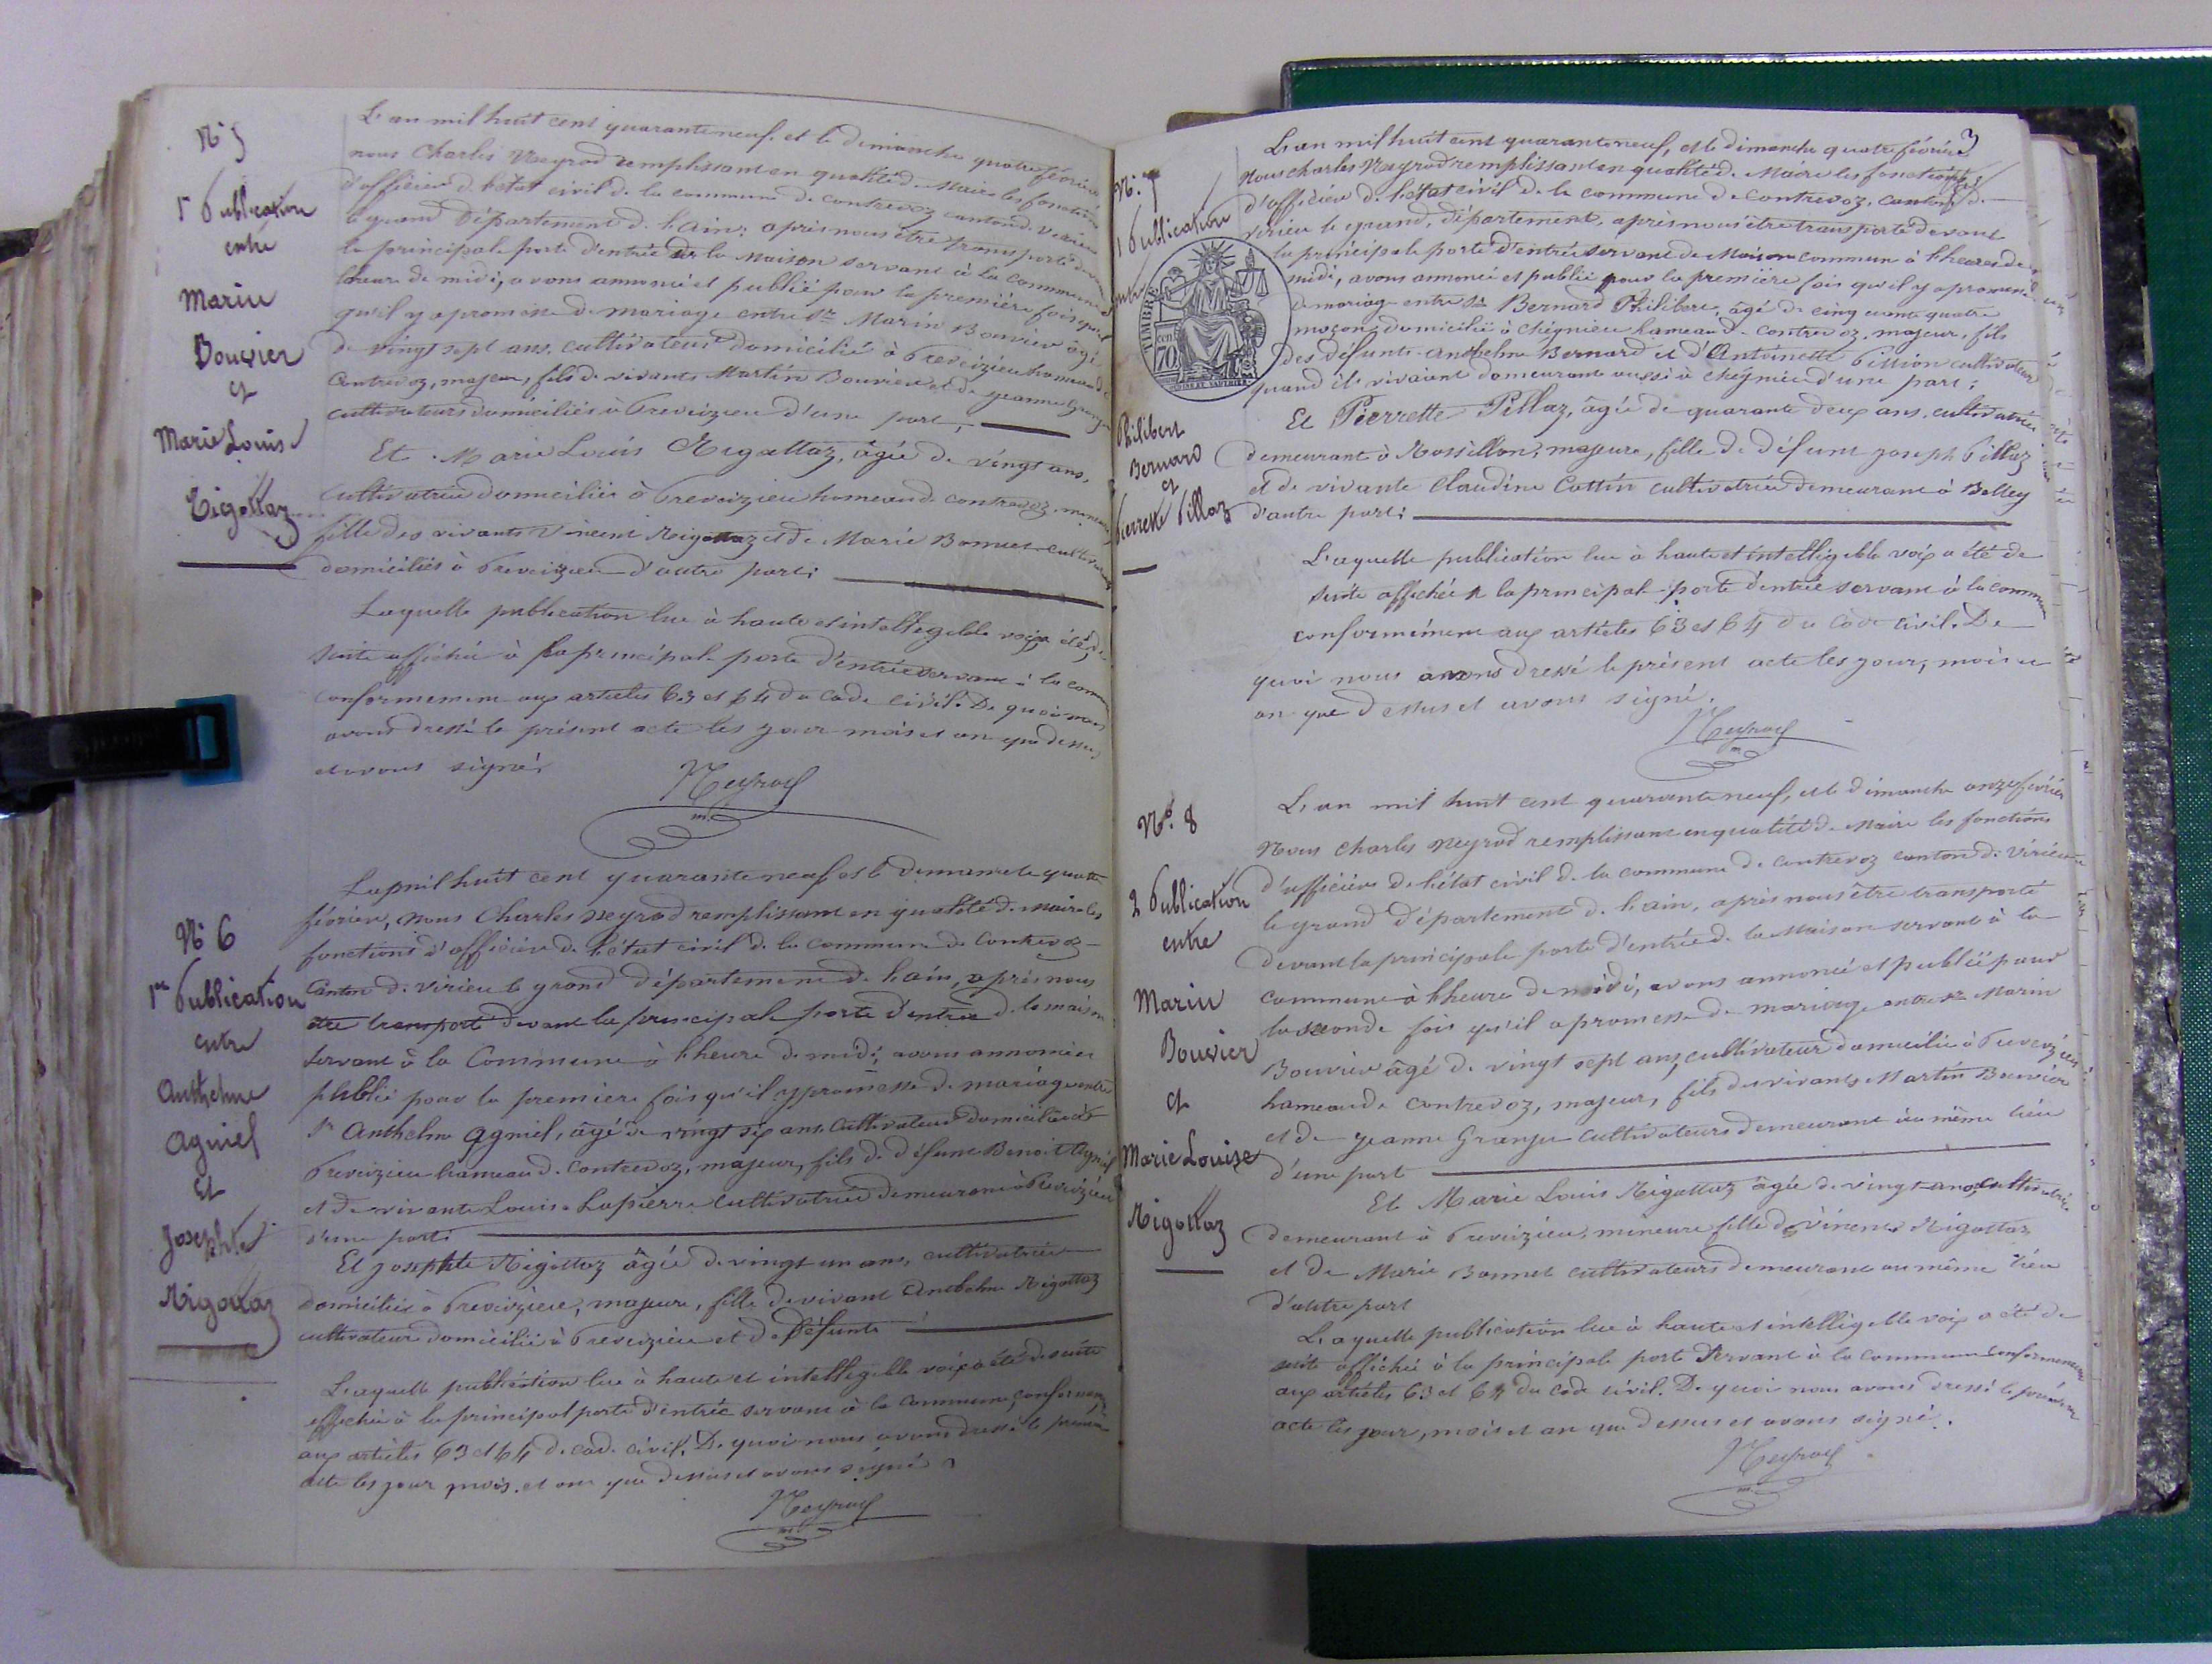 N° 5
1re Publication
entre
Marin
Bouvier
et
Marie Louise
Rigottaz
L'an mil huit cent quarante neuf et le dimanche quatre février
nous Charles Neyrod remplissant en qualité de Maire les fonctions
d'officier de l'état civil de la commune de contrevoz canton de Virieu
le grand Département de l'ain, après nous être transporté devant
la principale porte d'entrée de la Maison servant à la commune à
l'heure de midi, avons annoncé et publié pour la première fois
qu'il y a promesse de mariage entre Sr Marin Bouvier âgé
de vingt sept ans, cultivateur domicilié à Preveizieu hameau de
Contrevoz, majeur, fils de vivants Martin Bouvier et de jeanne
cultivateurs domiciliés à Preveizieu d'une part,
Et Marie Louis Rigottaz, âgée de vingt ans,
cultivatrice domiciliée à Preveizieu hameau de contrevoz, mineure
fille des vivants Vincent Rigottaz et de Marie Bonnet cultivateurs
domiciliés à Preveizieu d'autre part;
Laquelle publication lue à haute et intelligible voix a été de
suite affichée à la principale porte d'entrée servant à la commune
conformement aux articles 63 et 64 du code civil. De quoi nous
avons dressé le présent acte les jour mois et an que dessus
et avons signé.
Neyrod
N° 6
1re Publication
entre
Anthelme
Agniel
et
Josephte
Rigottaz
L'an mil huit cent quarante neuf et le dimanche quatre
février, nous Charles Neyrod remplissant en qualité de maire les
fonctions d'officier de l'état civil de la commune de Contrevoz
Canton de Virieu le grand Département de l'ain, après nous
être transporté devant la principale porte d'entrée de la maison
servant à la Commune à l'heure de midi, avons annoncé et
publié pour la premiere fois qu'il y promesse de mariage entre
Sr Anthelme Agniel, âgé de vingt six ans Cultivateur domicilié à
Preveizieu hameau de contrevoz, majeur, fils de défunt Benoit Agniel
et de vivante Louise Lapierre cultivatrice demeurant à Preveizieu
d'une part;
Et josephte Rigottaz âgée de vingt un ans, cultivatrice
domiciliée à Preveizieu, majeure, fille de vivant Anthelme Rigottaz
cultivateur domicilié à Preveizieu et de défunte
Laquelle publication lue à haute et intelligible voix a été de suite
affichée à la principal porte d'entrée servant à la commune, conformement
aux articles 63 et 64 de code civil. De quoi nous avons dressé le présent
acte les jour mois et an que dessus et avons signé
Neyrod
3
N° 7
1 Publication
entre
TIMBRE
70
Philibert
Bernard
et
Pierrette Pillaz
L'an mil huit cent quarante neuf, et le dimanche quatre février
Nous charles Neyrod remplissant en qualité de Maire les fonctions
d'officier de l'état civil de la commune de Contrevoz, canton de
virieu le grand, département, après nous être transporté devant
la principale porte d'entrée servant de Maison commun à l'heure de
midi, avons annoncé et publié pour la première fois qu'il y a promesse
de mariage entre Sr Bernard Philibert, âgé de cinquante quatre
maçon, domicilié à cheignieu hameau de Contrevoz, majeur, fils
des défunts anthelme Bernard et d'Antoinette Pittion cultivateurs
quand ils vivaient demeurant aussi à cheignieu d'une part;
Et Pierrette Pillaz, âgée de quarante deux ans, cultivatrice
demeurant à Rossillon, majeure, fille de défunt joseph Pillaz
et de vivante Claudine Cottin cultivatrice demeurant à Belley
d'autre part;
Laquelle publication lue à haute et intelligible voix a été de
suite affichée à la principale porte d'entrée servant à la commune
conformément aux articles 63 et 64 du code civil. De
quoi nous avons dressé le présent acte les jour, mois et
an que dessus et avons signé.
Neyrod
N° 8
2 Publication
entre
Marin
Bouvier
et
Marie Louise
Rigottaz
L'an mil huit cent quarante neuf, et le dimanche onze février
Nous Charles Neyrod remplissant en qualité de Maire les fonctions
d'officier de l'état civil de la commune de contrevoz canton de Virieu
le grand Département de l'ain, après nous être transporté
devant la principale porte d'entrée de la Maison servant à la
commune à l'heure de midi, avons annoncé et publié pour
la seconde fois qu'il a promesse de mariage entre Sr Marin
Bouvier âgé de vingt sept ans, cultivateur domicilié à Preveizieu
hameau de contrevoz, majeur, fils de vivants Martin Bouvier
et de jeanne Granger cultivateurs demeurant au même lieu
d'une part
Et Marie Louis Rigottaz âgée de vingt ans, cultivatrice
demeurant à Preveizieu, mineure fille de Vincent Rigottaz
et de Marie Bonnet cultivateurs demeurant au même lieu
d'autre part
Laquelle publication lue à haute et intelligible voix a été de
suite affichée à la principale porte servant à la commune conformement
aux articles 63 et 64 du code civil. De quoi nous avons dressé le présent
acte les jour, mois et an que dessus et avons signé.
Neyrod